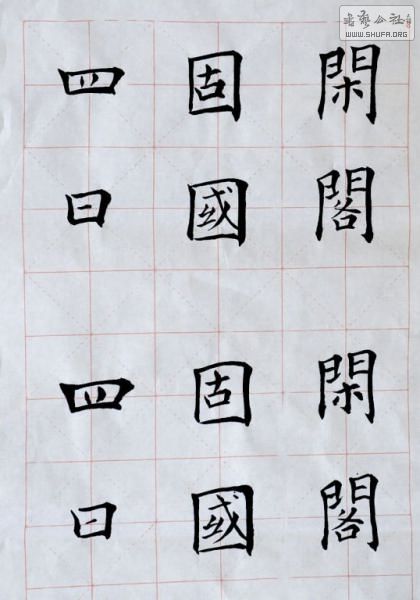 閑閣閑閣
固國固國
四日四日
書藝公社
WWW.SHUFA.ORG